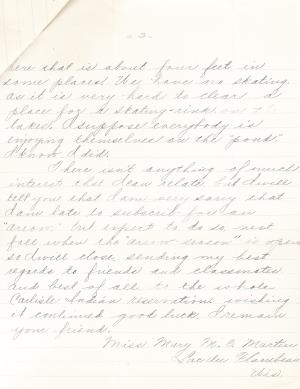 - 2 -
here that is about four feet in
some places. We have no skating.
as it is very hard to clear a
place for a skating-rink on the
lakes. I suppose everybody is
enjoying themselves on the "pond"
I know I did.
There isn't anything of much
interest that I can relate. but I will
tell you that I am very sorry that
I am late to subscrib for an
"arrow." but expect to do so next
fall when the "arrow season" is open
so I will close. sending my best
regards to friends and classmates
and best of all to the whole
Carlisle Indian reservation wishing
it continued good luck. I remain
your friend.
Miss Mary M. E. Martin
Lac du Flambeau
Wis.